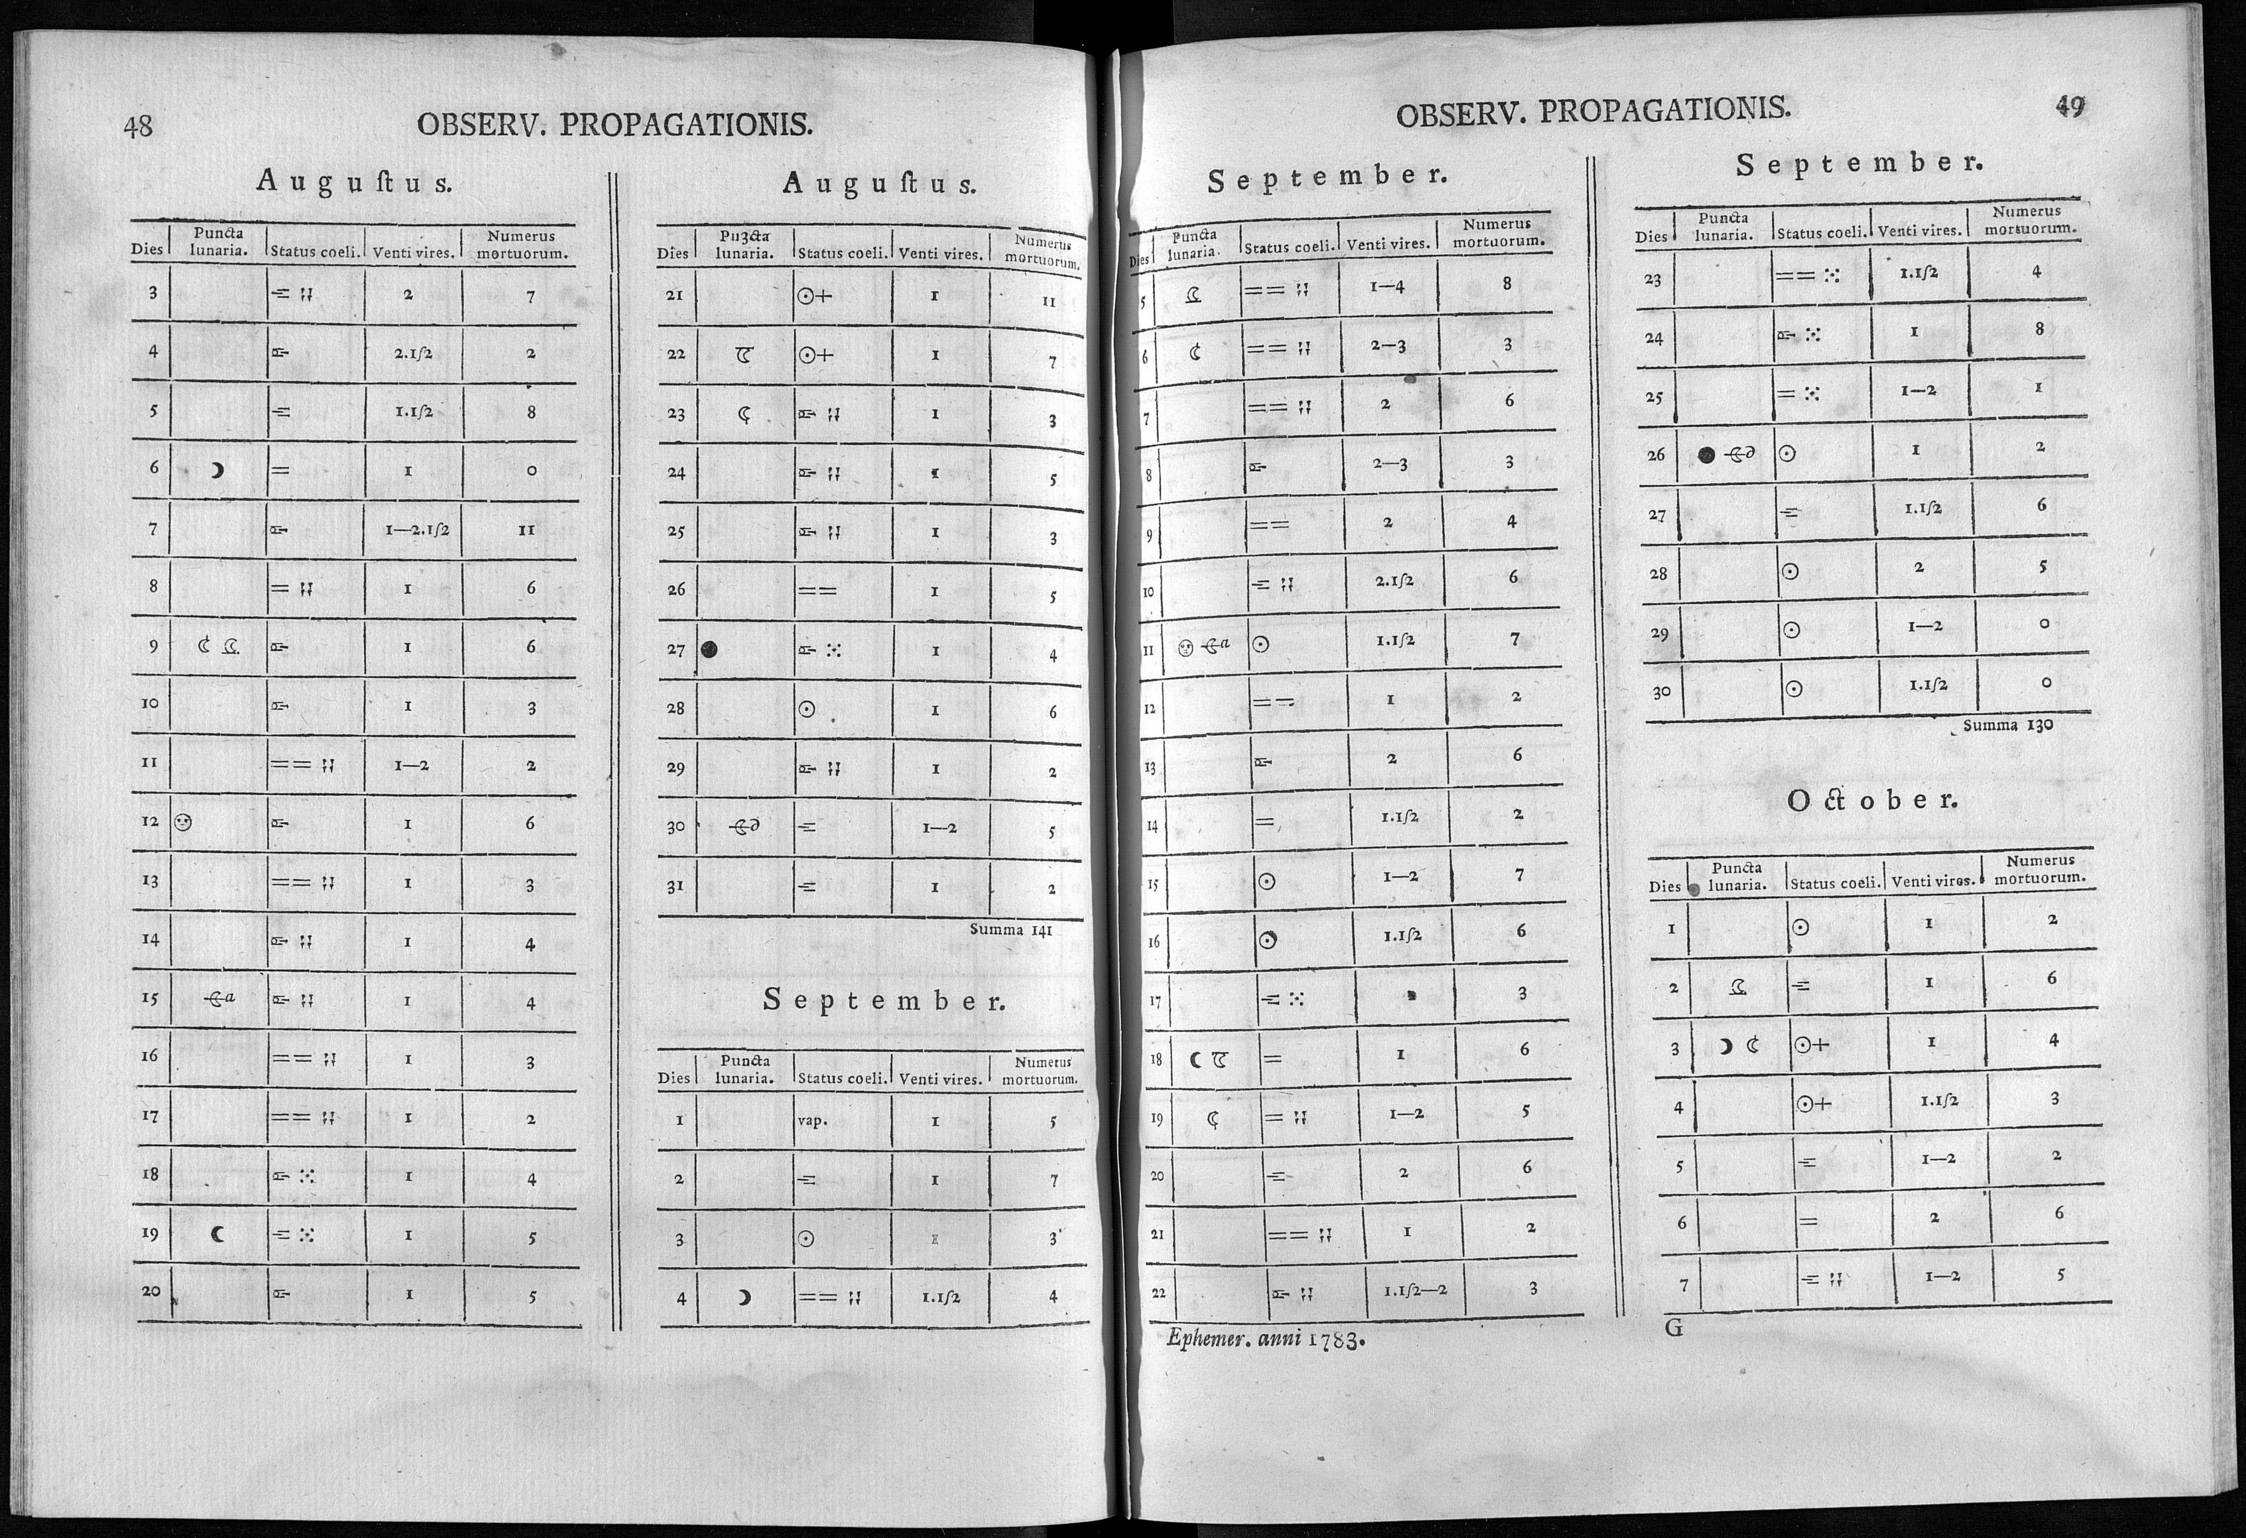 48
OBSERV. PROPAGATIONIS.
Auguſtus.
Dies Puncta lunaria. Status coeli. Venti vires. Numerus mortuorum.
3 2 7
4 2.1ſ2 2
5 1.1ſ2 8
6 ☽ = 1 0
7 1—2.1ſ2 11
8 = 1 6
9 1 6
10 1 3
11 == 1—2 2
12 1 6
13 == 1 3
14 1 4
15 a 1 4
16 == 1 3
17 == 1 2
18 1 4
19 ☾ 1 5
20 1 5
Auguſtus.
Dies Puʒcta lunaria. Status coeli. Venti vires. Numerus mortuorum.
21 ☉+ 1 11
22 ☉+ 1 7
23 1 3
24 1 5
25 1 3
26 == 1 5
27 ● 1 4
28 ☉ 1 6
29 1 2
30 1—2 5
31 1 2
Summa 141
September.
Dies Puncta lunaria. Status coeli. Venti vires. Numerus mortuorum.
1 vap. 1 5
2 1 7
3 ☉ 3
4 ☽ == 1.1ſ2 4
OBSERV. PROPAGATIONIS.
49
September.
Dies Puncta lunaria. Status coeli. Venti vires. Numerus mortuorum.
5 == 1—4 8
6 == 2—3 3
7 == 2 6
8 2—3 3
9 == 2 4
10 2.1ſ2 6
11 a ☉ 1.1ſ2 7
12 == 1 2
13 2 6
14 = 1.1ſ2 2
15 ☉ 1—2 7
16 ☉ 1.1ſ2 6
17 3
18 ☾ = 1 6
19 = 1—2 5
20 2 6
21 == 1 2
22 1.1ſ2—2 3
Ephemer. anni 1783.
September.
Dies Puncta lunaria. Status coeli. Venti vires. Numerus mortuorum.
23 == 1.1ſ2 4
24 1 8
25 = 1—2 1
26 ● ☉ 1 2
27 1.1ſ2 6
28 ☉ 2 5
29 ☉ 1—2 0
30 ☉ 1.1ſ2 0
Summa 130
October.
Dies Puncta lunaria. Status coeli. Venti vires. Numerus mortuorum.
1 ☉ 1 2
2 1 6
3 ☽ ☉+ 1 4
4 ☉+ 1.1ſ2 3
5 1—2 2
6 = 2 6
7 1—2 5
G